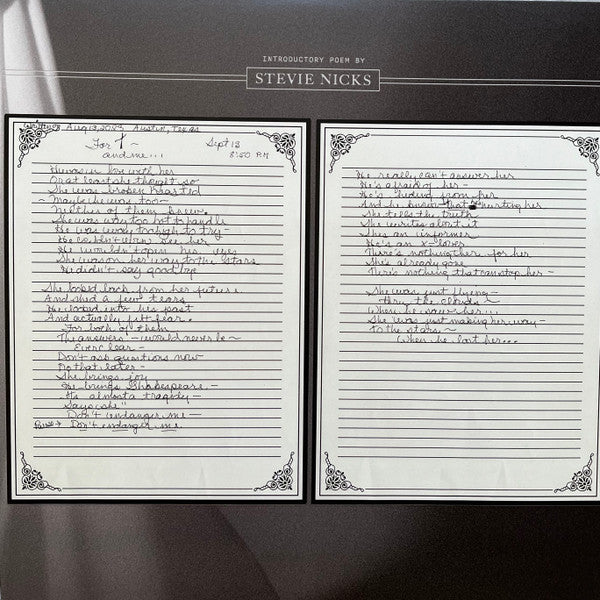 INTRODUCTORY POEM BY
STEVIE NICKS
Written Aug 13, 2023 Austin, Texas
For T ~
and me...
Sept 13
8:50 PM
He was in love with her
Or at least she thought so
She was broken hearted
~ Maybe he was too ~
Neither of them knew.
She was way too hot to handle
He was way too high to try -
He couldn't even see her
He wouldn't open his eyes
She was on her way to the stars
He didn't say goodbye
She looked back from her future
And shed a few tears
He looked into his past
And actually felt fear.
For both of them
The answers - would never be ~
Ever clear -
Don't ask questions now
Do that later -
She brings joy
He brings Shakespeare. -
It's almost a tragedy -
Says she"
Don't endanger me -
Pause → Don't endanger me
He really can't answer her
He's afraid of her -
He's hiding from her
And he knows that he's hurting her
She tells the truth
She writes about it
She's an informer
He's an x-lover
There's nothing there for her
She's already gone
There's nothing that can stop her -
She was just flying -
thru the clouds ~
When he saw her...
She was just making her way -
to the stars ~
When he lost her...